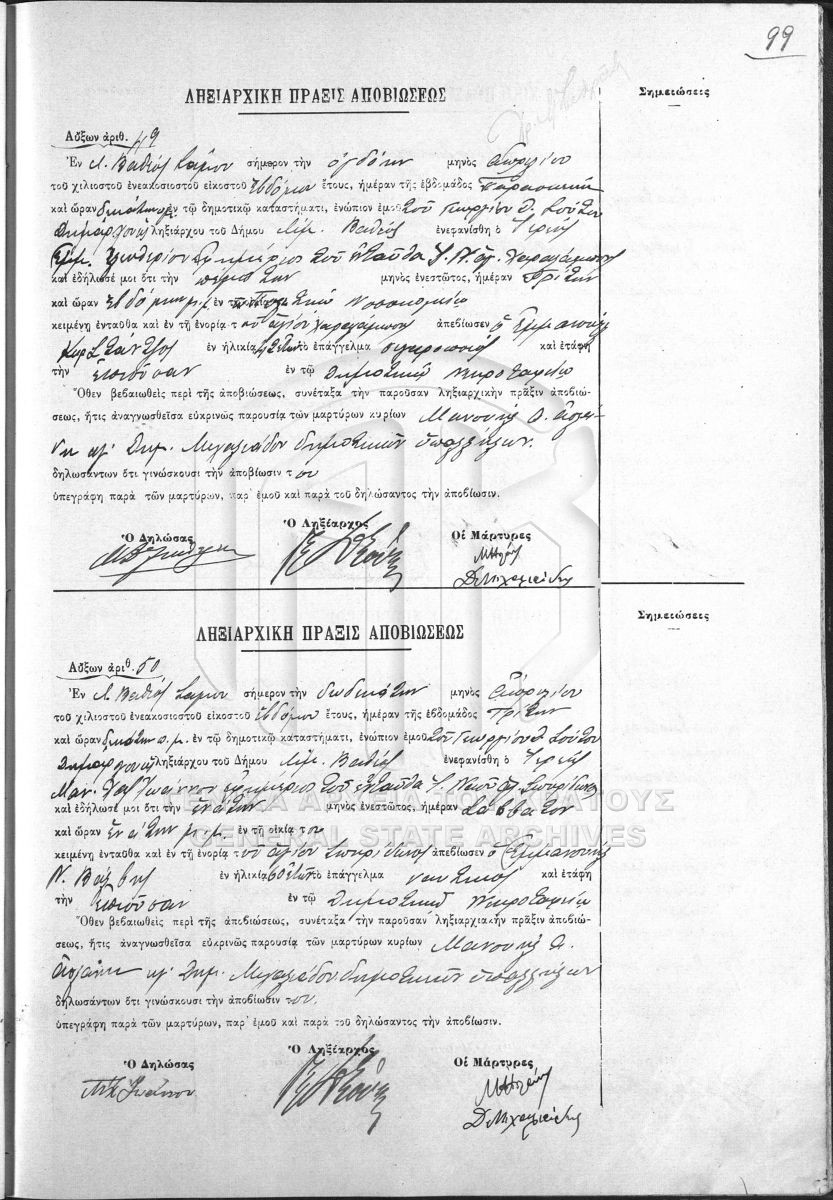 99
ΛΗΞΙΑΡΧΙΚΗ ΠΡΑΞΙΣ ΑΠΟΒΙΩΣΕΩΣ
Σημειώσεις
Αὔξων ἀριθ. 49
Ἐν Λ. Βαθέος Σάμου σήμερον τὴν ὀγδόην μηνὸς Ἀπριλίου
τοῦ χιλιοστοῦ ἐνεακοσιοστοῦ εἰκοστοῦ ἑβδόμου ἔτους, ἡμέραν τῆς ἑβδομάδος Παρασκευὴν
καὶ ὥραν δεκάτην π.μ. ἐν τῷ δημοτικῷ καταστήματι, ἐνώπιον ἐμοῦ τοῦ Γεωργίου Δ. Σούτου
Δημάρχου ὡς ληξιάρχου τοῦ Δήμου Λιμ. Βαθέος ἐνεφανίσθη ὁ Ἱερεὺς
Ἐμμ. ἐφημέριος τοῦ ἐνταῦθα Ἱ. Ν. Ἁγ. Χαραλάμπους
καὶ ἐδήλωσέ μοι ὅτι τὴν πέμπτην μηνὸς ἐνεστῶτος, ἡμέραν Τρίτην
καὶ ὥραν ἑβδόμην μ.μ. ἐν τῷ Νοσοκομείῳ
κειμένῃ ἐνταῦθα καὶ ἐν τῇ ἐνορίᾳ τοῦ ἁγίου Χαραλάμπους ἀπεβίωσεν ὁ Ἐμμανουὴλ
ἐν ἡλικίᾳ ἐτῶν τὸ ἐπάγγελμα σιγαροποιὸς καὶ ἐτάφη
τὴν ἐπιοῦσαν ἐν τῷ Δημοτικῷ Νεκροταφείῳ
Ὅθεν βεβαιωθεὶς περὶ τῆς ἀποβιώσεως, συνέταξα τὴν παροῦσαν ληξιαρχικὴν πρᾶξιν ἀποβιώ-
σεως, ἥτις ἀναγνωσθεῖσα εὐκρινῶς παρουσίᾳ τῶν μαρτύρων κυρίων Μανουὴλ Α.
κ. Δημ. Μιχαλιάδου δημοτικῶν ὑπαλλήλων
δηλωσάντων ὅτι γινώσκουσι τὴν ἀποβίωσιν του
ὑπεγράφη παρὰ τῶν μαρτύρων, παρ' ἐμοῦ καὶ παρὰ τοῦ δηλώσαντος τὴν ἀποβίωσιν.
Ὁ Δηλώσας Ὁ Ληξίαρχος Οἱ Μάρτυρες
ΛΗΞΙΑΡΧΙΚΗ ΠΡΑΞΙΣ ΑΠΟΒΙΩΣΕΩΣ
Σημειώσεις
Αὔξων ἀριθ. 50
Ἐν Λ. Βαθέος Σάμου σήμερον τὴν δωδεκάτην μηνὸς Ἀπριλίου
τοῦ χιλιοστοῦ ἐνεακοσιοστοῦ εἰκοστοῦ ἑβδόμου ἔτους, ἡμέραν τῆς ἑβδομάδος Τρίτην
καὶ ὥραν δεκάτην π.μ. ἐν τῷ δημοτικῷ καταστήματι, ἐνώπιον ἐμοῦ τοῦ Γεωργίου Δ. Σούτου
Δημάρχου ὡς ληξιάρχου τοῦ Δήμου Λιμ. Βαθέος ἐνεφανίσθη ὁ Ἱερεὺς
Μαν. ἐφημέριος τοῦ ἐνταῦθα Ἱ. Ναοῦ Ἁγ. Σπυρίδωνος
καὶ ἐδήλωσέ μοι ὅτι τὴν ἐνάτην μηνὸς ἐνεστῶτος, ἡμέραν Σάββατον
καὶ ὥραν ἐνάτην μ.μ. ἐν τῇ οἰκίᾳ του
κειμένῃ ἐνταῦθα καὶ ἐν τῇ ἐνορίᾳ τοῦ ἁγίου Σπυρίδωνος ἀπεβίωσεν ὁ Ἐμμανουὴλ
Ν. Βάλβης ἐν ἡλικίᾳ 60 ἐτῶν τὸ ἐπάγγελμα ναυτικὸς καὶ ἐτάφη
τὴν ἐπιοῦσαν ἐν τῷ Δημοτικῷ Νεκροταφείῳ
Ὅθεν βεβαιωθεὶς περὶ τῆς ἀποβιώσεως, συνέταξα τὴν παροῦσαν ληξιαρχικὴν πρᾶξιν ἀποβιώ-
σεως, ἥτις ἀναγνωσθεῖσα εὐκρινῶς παρουσίᾳ τῶν μαρτύρων κυρίων Μανουὴλ Α.
κ. Δημ. Μιχαλιάδου δημοτικῶν ὑπαλλήλων
δηλωσάντων ὅτι γινώσκουσι τὴν ἀποβίωσιν του
ὑπεγράφη παρὰ τῶν μαρτύρων, παρ' ἐμοῦ καὶ παρὰ τοῦ δηλώσαντος τὴν ἀποβίωσιν.
Ὁ Δηλώσας Ὁ Ληξίαρχος Οἱ Μάρτυρες
ΓΕΝΙΚΑ ΑΡΧΕΙΑ ΤΟΥ ΚΡΑΤΟΥΣ
GENERAL STATE ARCHIVES